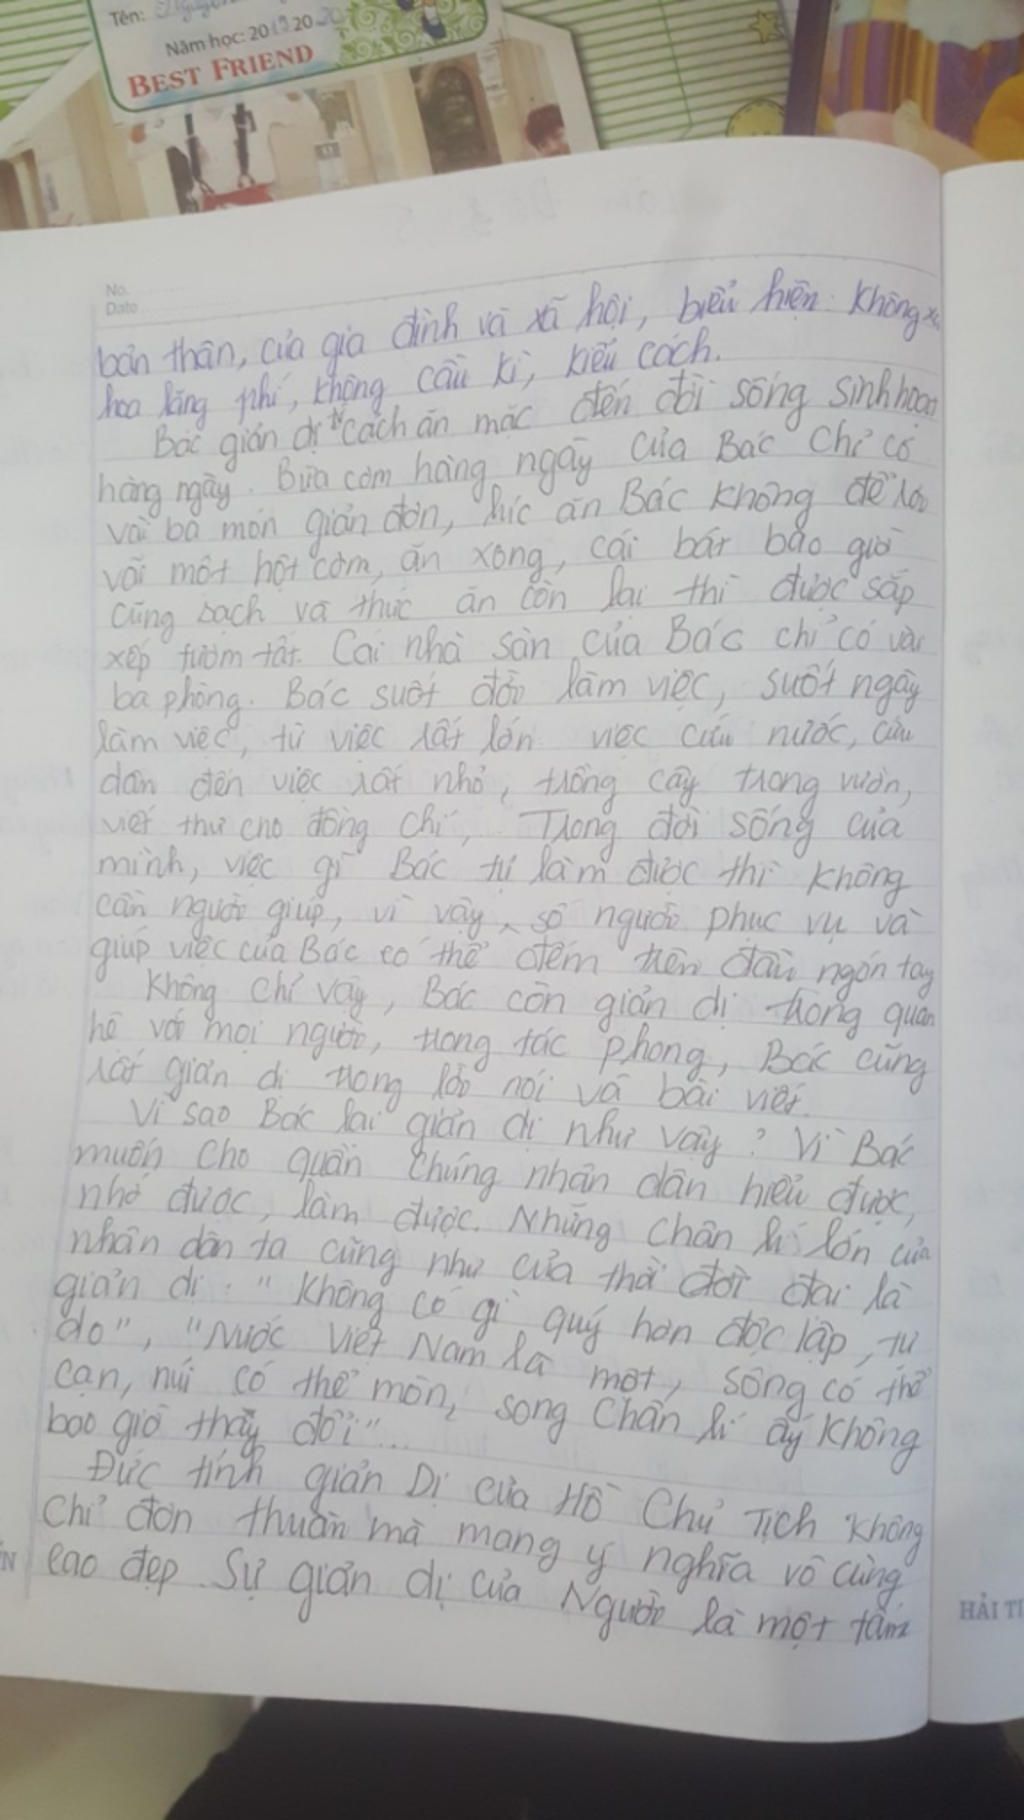 Tên: Nguyễn
Năm học: 2019 2020
BEST FRIEND
No.
Date
bản thân, của gia đình và xã hội, biểu hiện: không xa
hoa lãng phí, không cầu kì, kiểu cách.
Bác giản dị từ cách ăn mặc đến đời sống sinh hoạt
hàng ngày. Bữa cơm hàng ngày của Bác chỉ có
vài ba món giản đơn, lúc ăn Bác không để rơi
vãi một hột cơm, ăn xong, cái bát bao giờ
cũng sạch và thức ăn còn lại thì được sắp
xếp tươm tất. Cái nhà sàn của Bác chỉ có vài
ba phòng. Bác suốt đời làm việc, suốt ngày
làm việc, từ việc rất lớn việc cứu nước, cứu
dân đến việc rất nhỏ, trồng cây trong vườn,
viết thư cho đồng chí, Trong đời sống của
mình, việc gì Bác tự làm được thì không
cần người giúp, vì vậy, số người phục vụ và
giúp việc của Bác có thể đếm trên đầu ngón tay
Không chỉ vậy, Bác còn giản dị trong quan
hệ với mọi người, trong tác phong, Bác cũng
rất giản dị trong lời nói và bài viết.
Vì sao Bác lại giản dị như vậy? Vì Bác
muốn cho quần chúng nhân dân hiểu được,
nhớ được, làm được. Những chân lí lớn của
nhân dân ta cũng như của thời đời đại là
giản dị: "Không có gì quý hơn độc lập, tự
do", "Nước Việt Nam là một, sông có thể
cạn, núi có thể mòn, song chân lí ấy không
bao giờ thay đổi"...
Đức tính giản Dị của Hồ Chủ Tịch không
chỉ đơn thuần mà mang ý nghĩa vô cùng
cao đẹp. Sự giản dị của Người là một tấm
HẢI TI